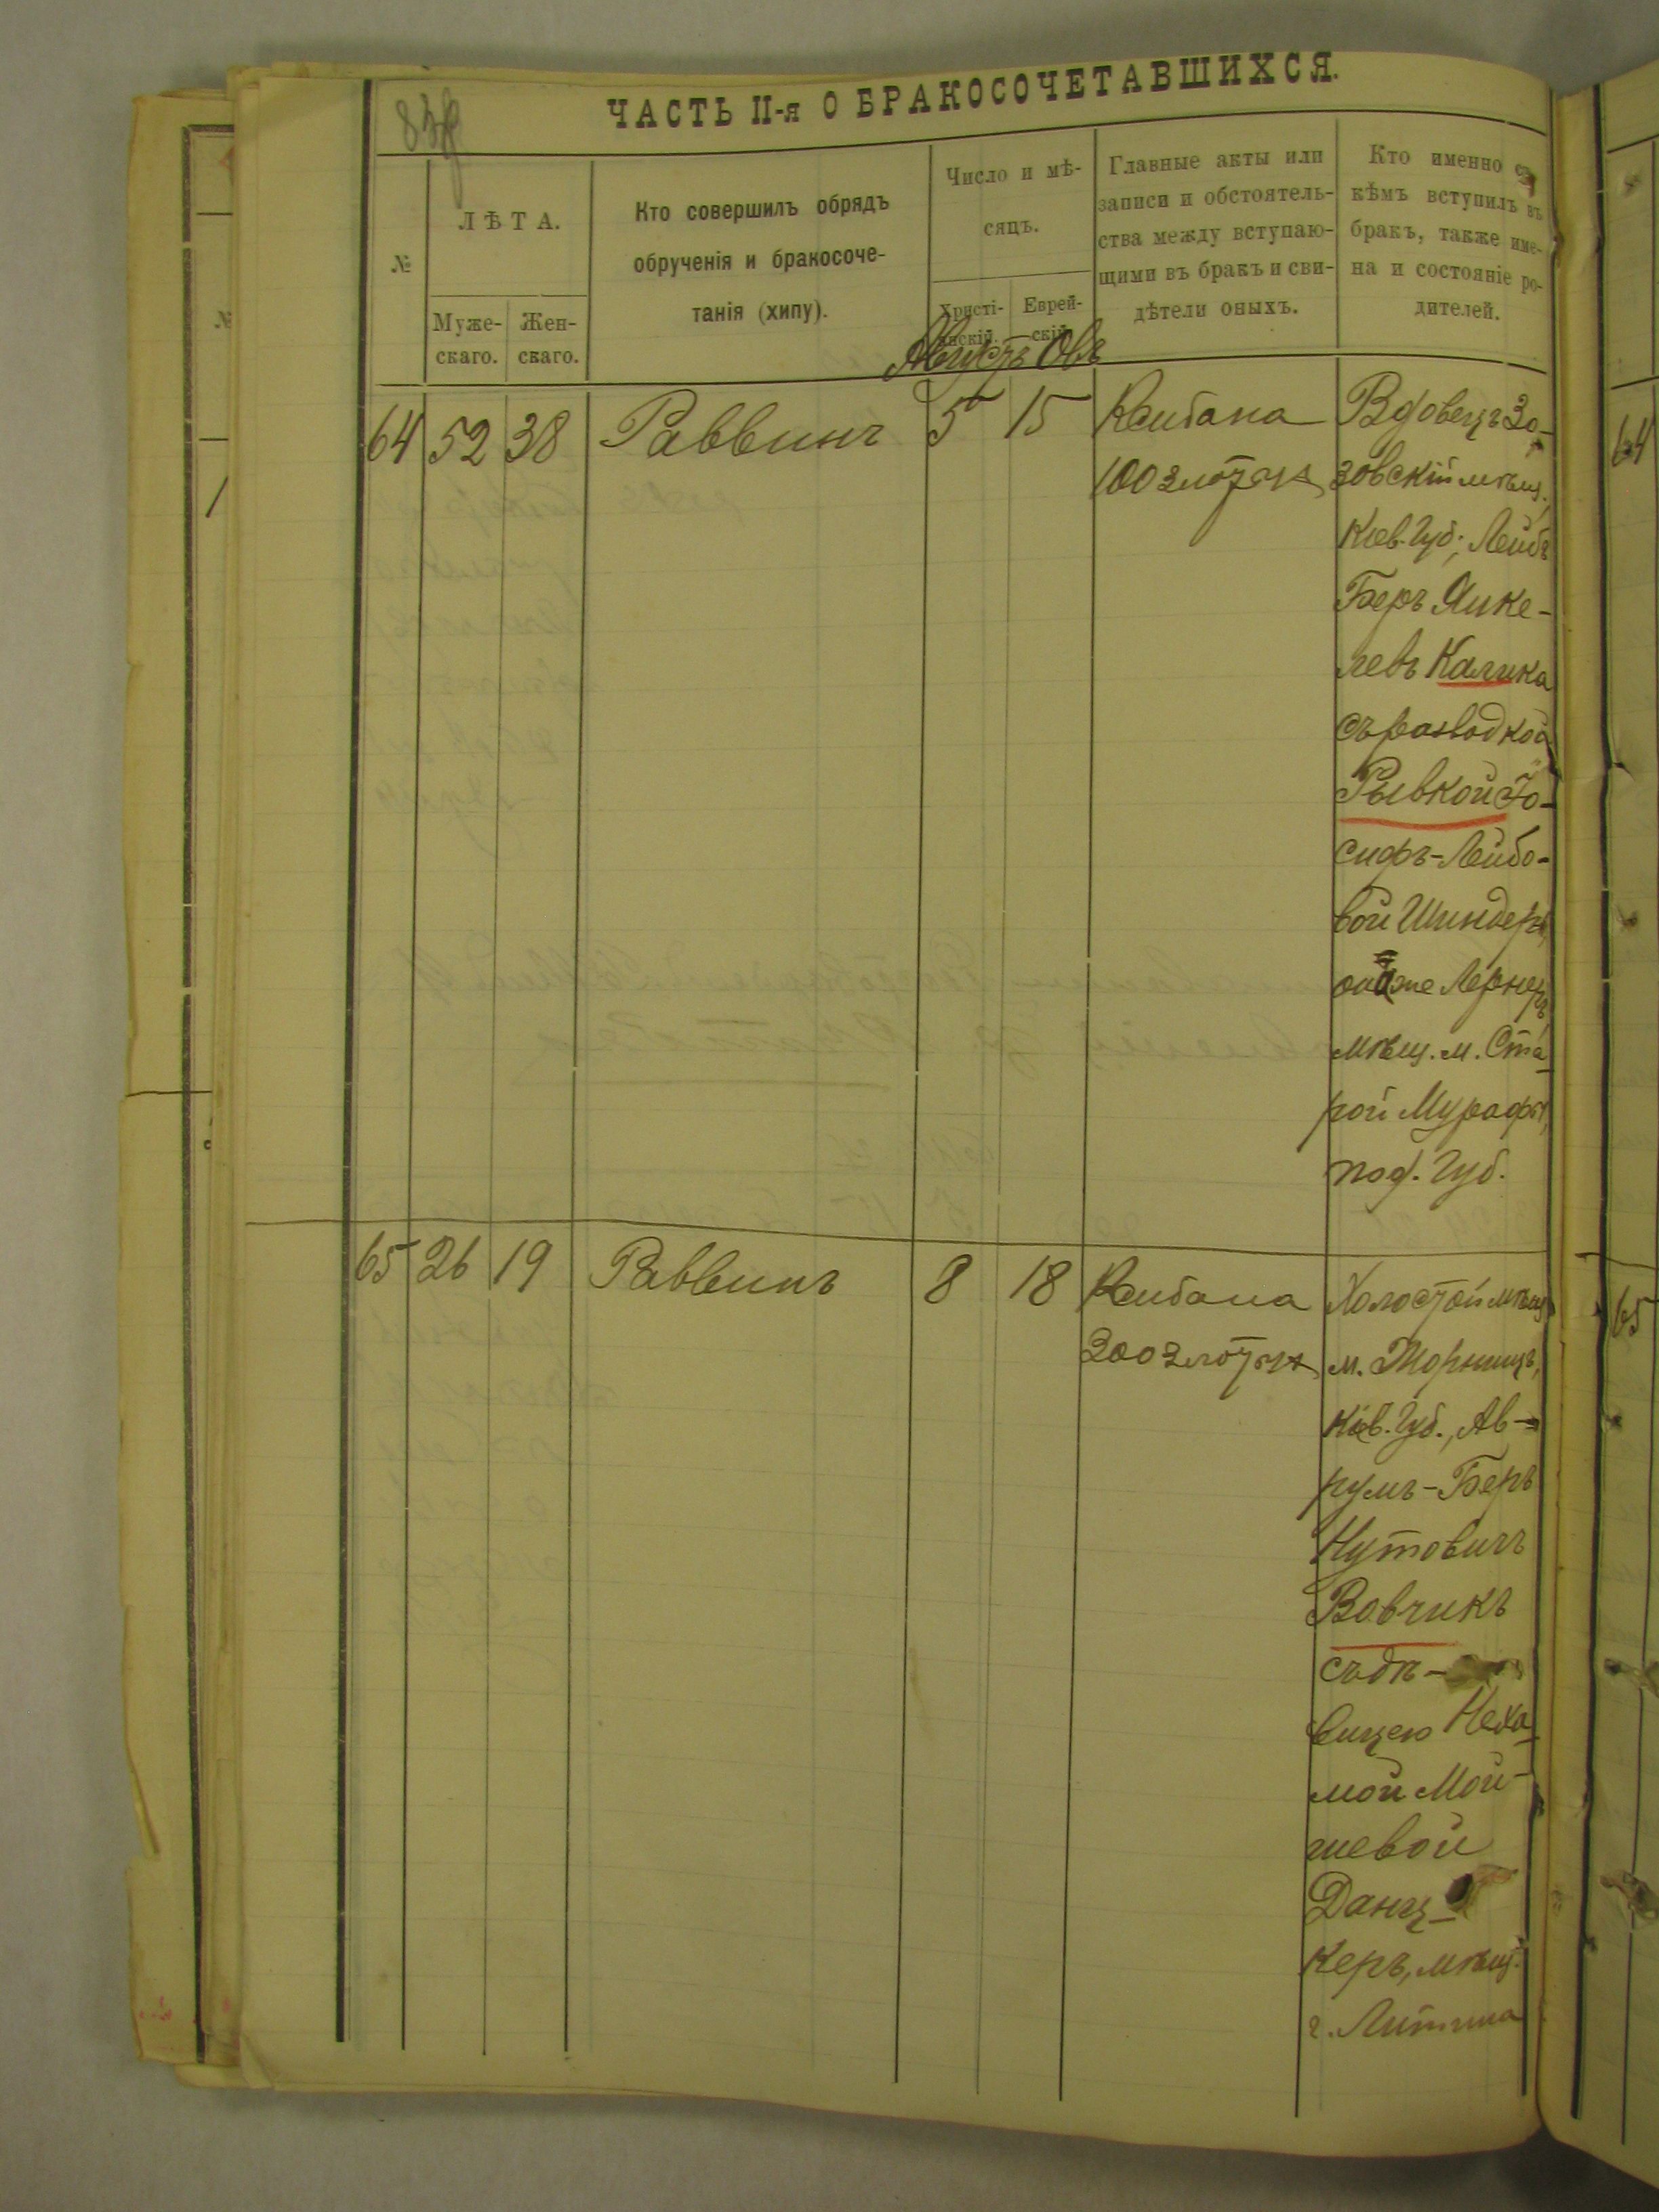 ЧАСТЬ II-я О БРАКОСОЧЕТАВШИХСЯ.
№
ЛѢТА.
Муже-
скаго.
Жен-
скаго.
Кто совершилъ обрядъ
обрученія и бракосоче-
танія (хипу).
Число и мѣ-
сяцъ.
Христі-
анскій.
Еврей-
скій.
Августъ Овъ
Главные акты или
записи и обстоятель-
ства между вступаю-
щими въ бракъ и сви-
дѣтели оныхъ.
Кто именно съ
кѣмъ вступилъ въ
бракъ, также име-
на и состояніе ро-
дителей.
64 52 38 Раввинъ 5 15
Ксибана
100 злотыхъ
Вдовецъ Зо-
зовскій мѣщ.
Кіев. Губ., Лейбъ
Беръ Янке-
левъ Калика
съ разводкой
Рывкой Іо-
сифъ-Лейбо-
вой Шиндеръ,
она же Лернеръ,
мѣщ. м. Ста-
рой Мурафы,
Под. Губ.
65 26 19 Раввинъ 8 18
Ксибана
200 злотыхъ
Холостой мѣщ.
м. Жорнищъ,
Кіев. Губ., Ав-
румъ-Беръ
Нутовичъ
Вовчикъ
съ дѣ-
вицею Неха-
мой Мой-
шевой
Данц-
керъ, мѣщ.
г. Литина
64
65